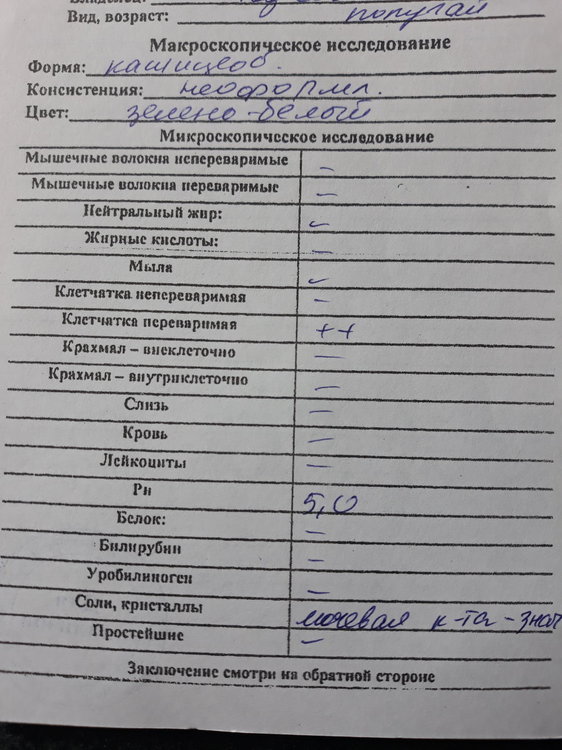 Вид, возраст: попугай
Макроскопическое исследование
Форма: кашицеоб.
Консистенция: неоформл.
Цвет: зелено-белый
Микроскопическое исследование
Мышечные волокна непереваримые –
Мышечные волокна переваримые –
Нейтральный жир: –
Жирные кислоты: –
Мыла –
Клетчатка непереваримая –
Клетчатка переваримая ++
Крахмал – внеклеточно –
Крахмал – внутриклеточно –
Слизь –
Кровь –
Лейкоциты –
Рн 5,0
Белок: –
Билирубин –
Уробилиноген –
Соли, кристаллы мочевая к-та - знач
Простейшие –
Заключение смотри на обратной стороне